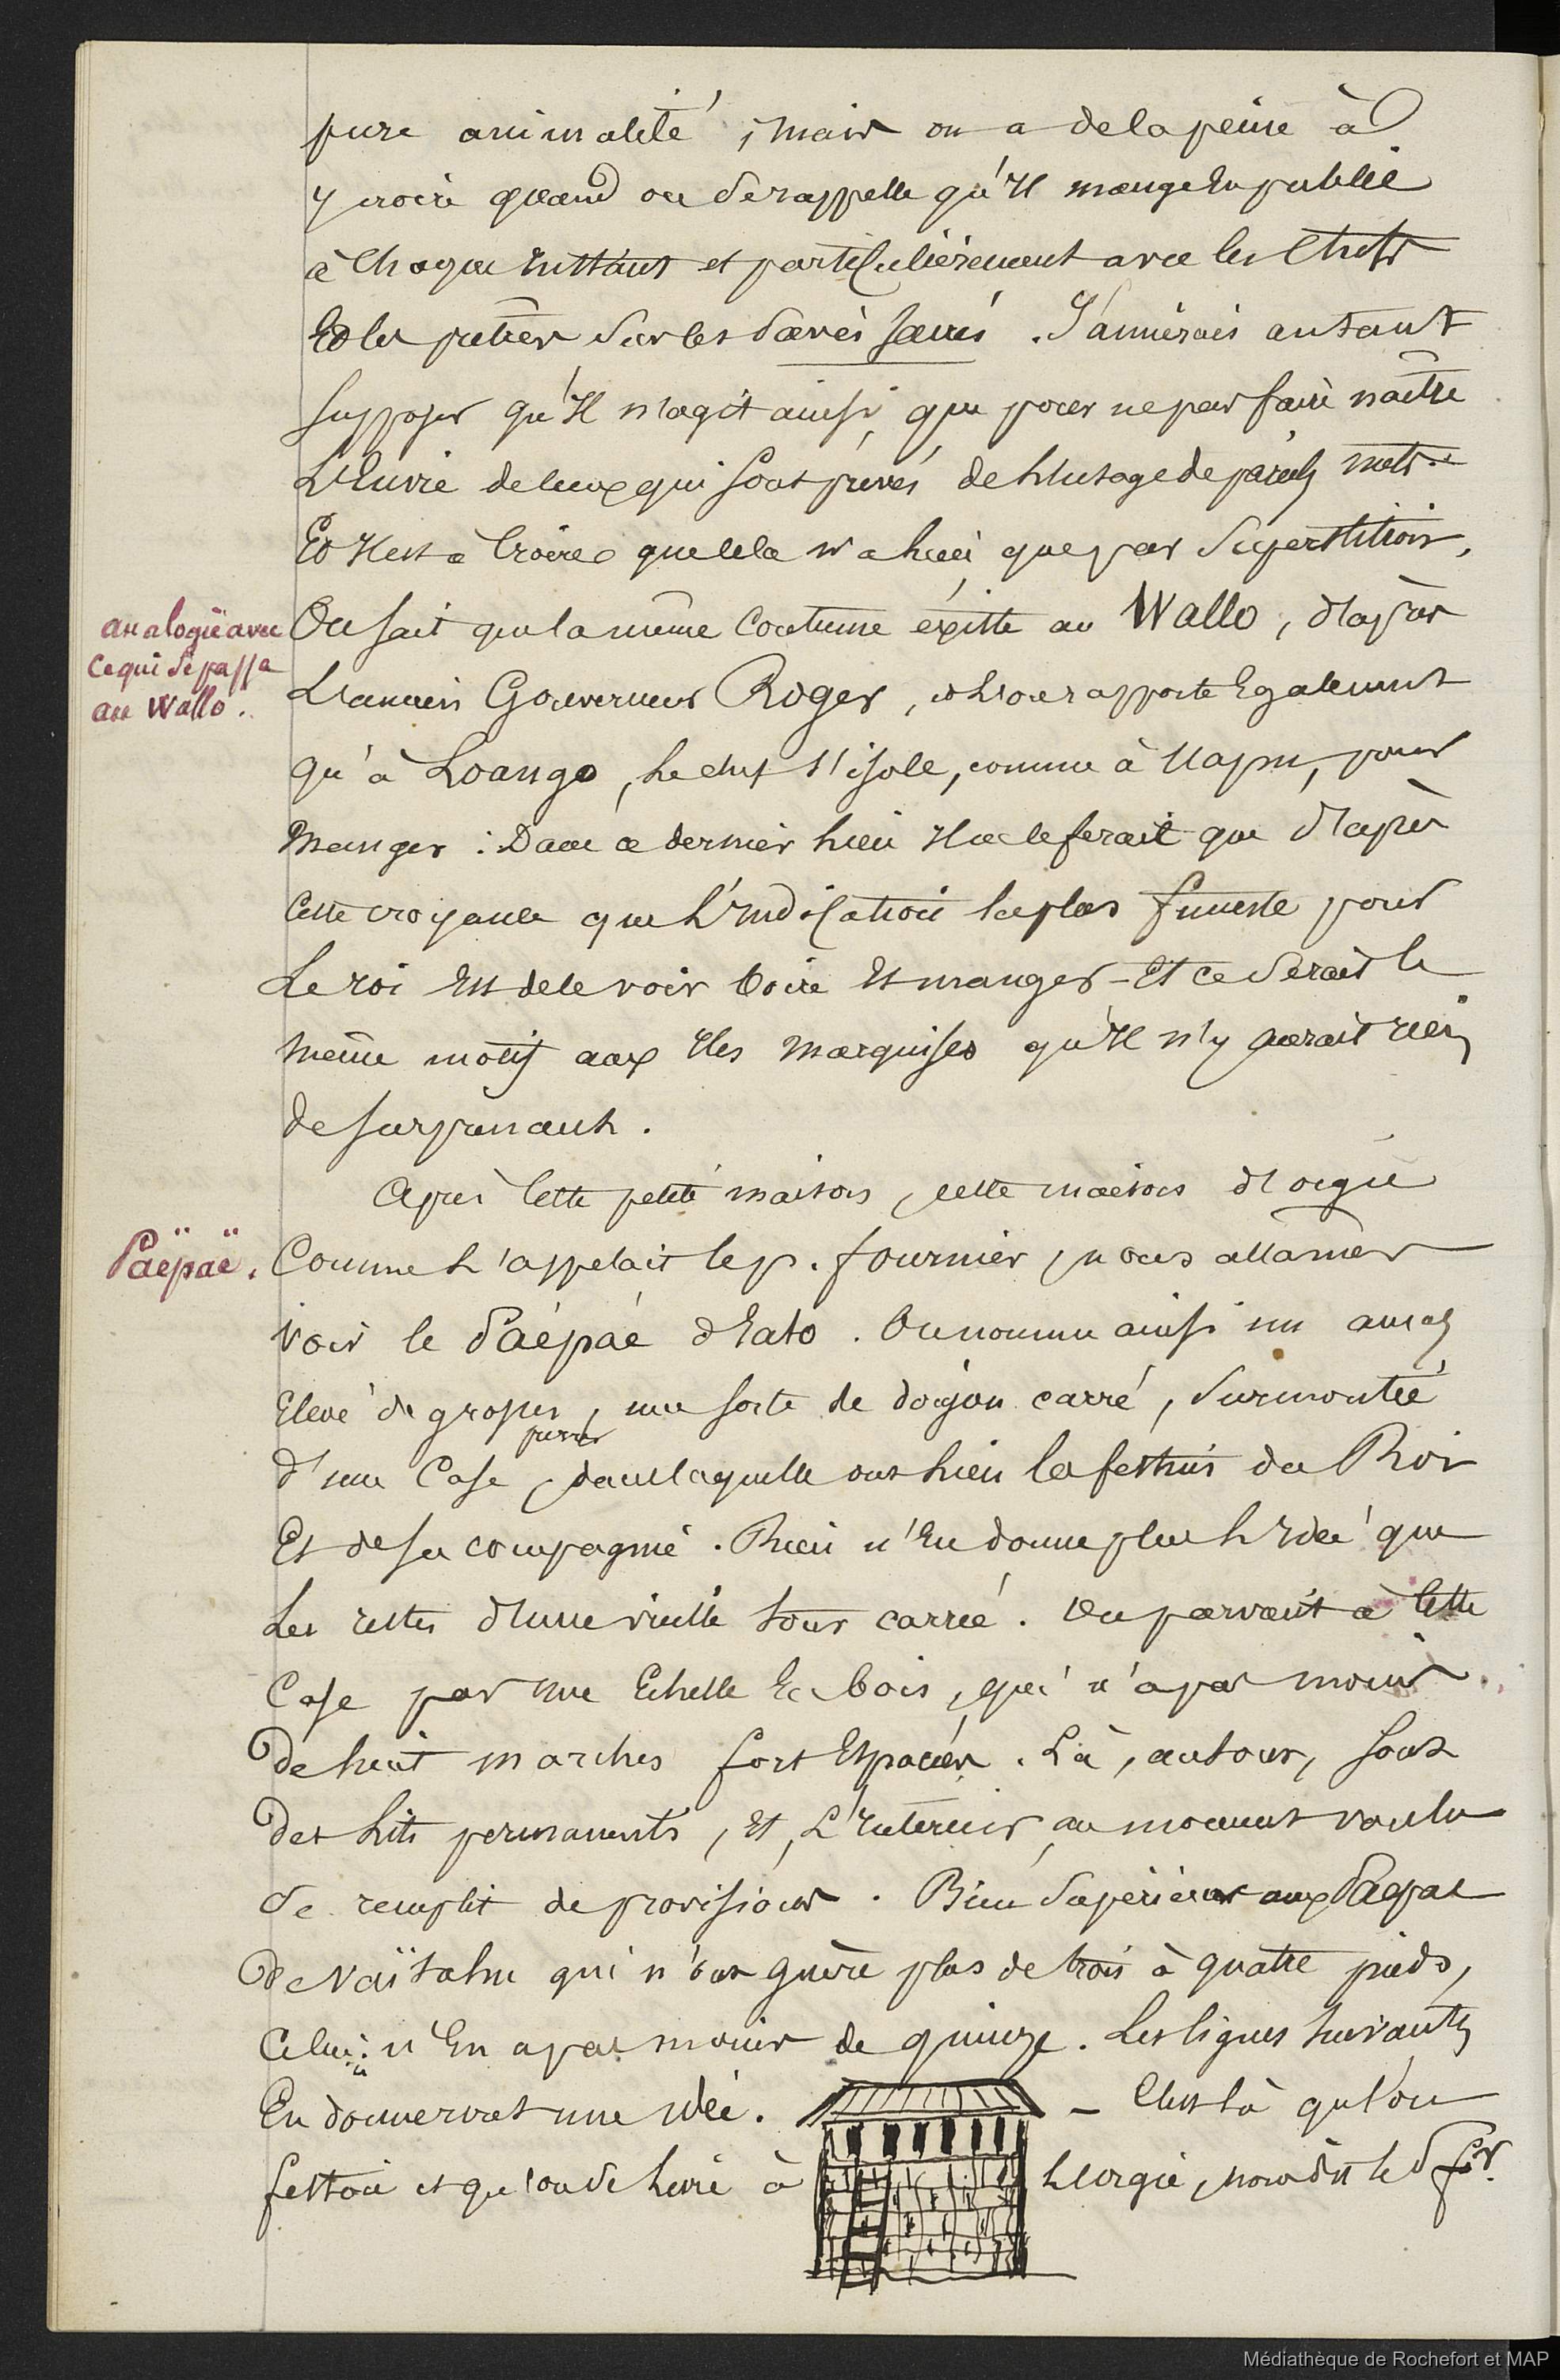 pure animalité, mais on a de la peine à
y croire quand on se rappelle qu'il mange en public
à chaque instant et particulièrement avec les chefs
et les prêtres sur les Paves sacrés. J'aimerais autant
supposer qu'il n'agit ainsi, que pour ne pas faire naître
l'Envie de ceux qui sont privés de l'usage de pareils mets.
Et il est à croire que cela n'a lieu que par superstition.
analogie avec
ce qui se passe
au Wallo.
On sait que la même coutume existe au Wallo, d'après
l'ancien Gouverneur Roger, rapporte Egalement
qu'à Loango, le chef s'isole, comme à Uapu, pour
manger : Dans ce dernier lieu il ne le ferait que d'après
cette croyance que l'indication la plus funeste pour
Le roi Est de le voir boire et manger - Et ce serait le
même motif aux îles marquises qu'il n'y aurait rien
de surprenant.
Après cette petite maison, cette maison d'orgie
Päepäe.
Comme l'appelait le p. fournier, nous allâmes
voir le Paépaé d'Eato. On nomme ainsi un amas
Elevé de grosses pierres, une sorte de donjon carré, surmontée
d'une Case, dans laquelle ont lieu les festins du Roi
Et de sa compagnie. Rien n'En donne plus l'Idée que
Les restes d'une vieille tour carrée. On parvient à cette
Case par une Echelle En bois, qui n'a pas moins
De huit marches fort Espacées. Là, autour, sont
Des lits permanents, Et, L'Intérieur, au moment voulu
se remplit de provisions. Bien supérieur aux Paepae
De Vaïtahu qui n'ont guère plus de trois à quatre pieds,
Celui-ci n'En a pas moins de quinze. Les lignes suivantes
En donneront une idée. - C'est là qu'on
festoie et qu'on se livre à l'orgie, nous dit le P. fer.
Médiathèque de Rochefort et MAP